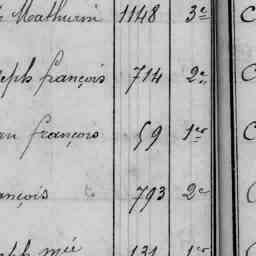 Mathurin 1148 3e C
eph françois 714 2e C
an françois 59 1er C
ançois 793 2e
131 1er